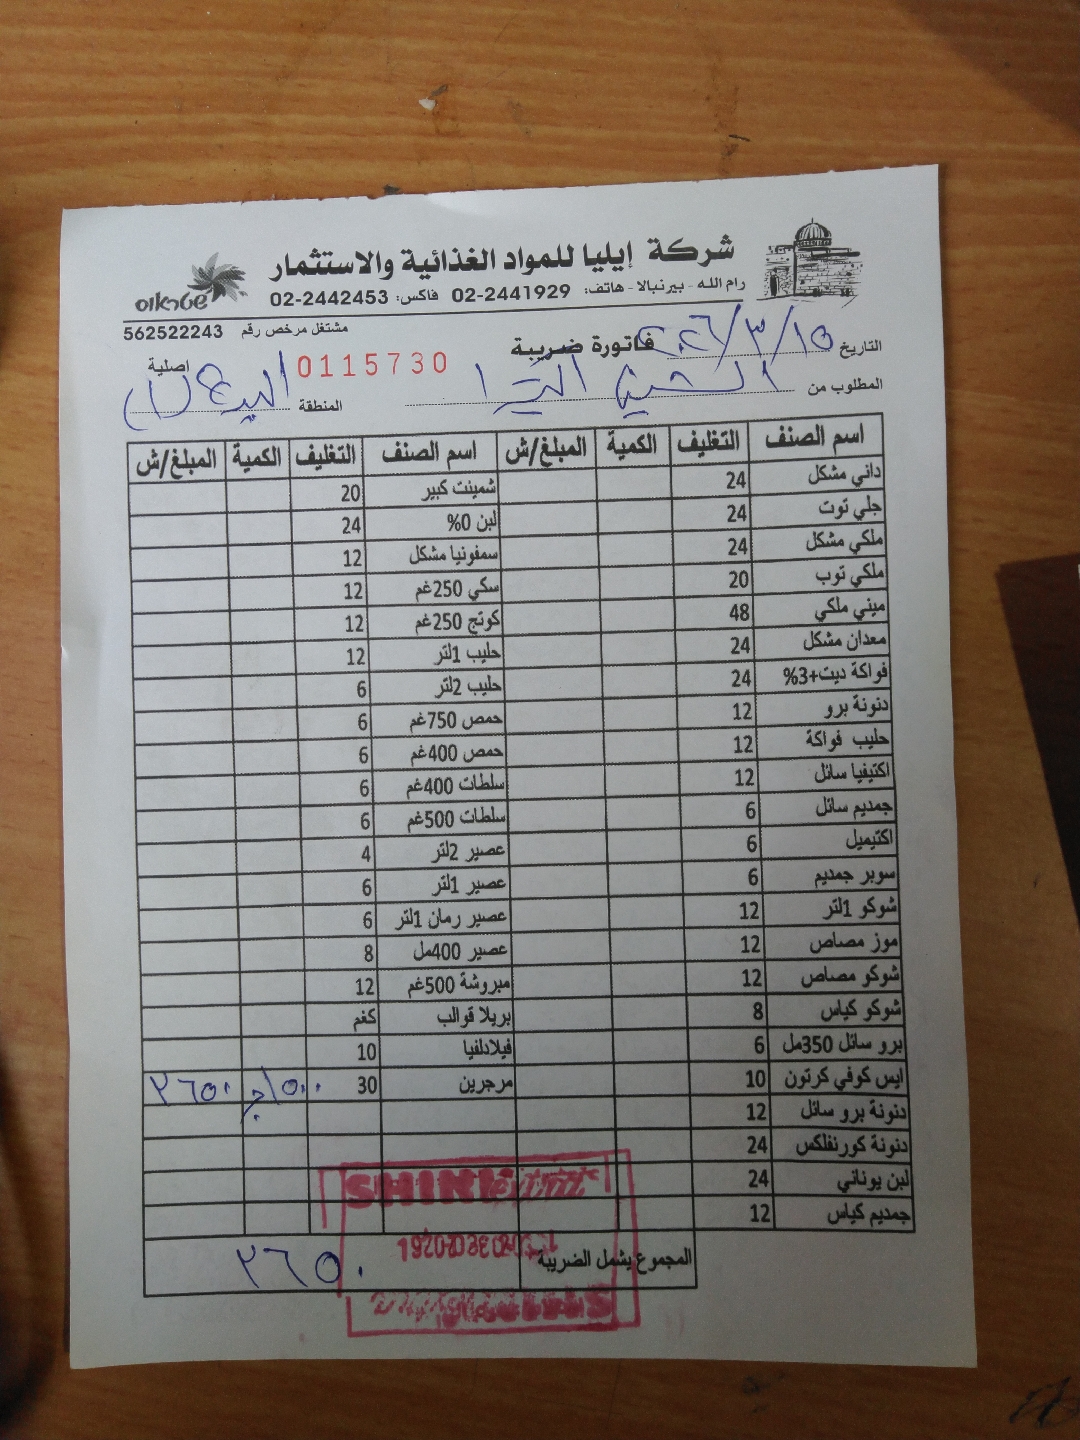 شركة إيليا للمواد الغذائية والاستثمار
شتراوس
رام الله - بيرنبالا - هاتف: 02-2441929 فاكس: 02-2442453
مشتغل مرخص رقم 562522243
التاريخ ٢٠٢٦/٣/١٥ فاتورة ضريبة
0115730 اصلية
المطلوب من المنطقة
اسم الصنف التغليف الكمية المبلغ/ش اسم الصنف التغليف الكمية المبلغ/ش
داني مشكل 24 شمينت كبير 20
جلي توت 24 لبن 0% 24
ملكي مشكل 24 سمفونيا مشكل 12
ملكي توب 20 سكي 250غم 12
ميني ملكي 48 كوتج 250غم 12
معدان مشكل 24 حليب 1لتر 12
فواكة ديت+3% 24 حليب 2لتر 6
دنونة برو 12 حمص 750غم 6
حليب فواكة 12 حمص 400غم 6
اكتيفيا سائل 12 سلطات 400غم 6
جمديم سائل 6 سلطات 500غم 6
اكتيميل 6 عصير 2لتر 4
سوبر جمديم 6 عصير 1لتر 6
شوكو 1لتر 12 عصير رمان 1لتر 6
موز مصاص 12 عصير 400مل 8
شوكو مصاص 12 مبروشة 500غم 12
شوكو كياس 8 بريلا قوالب كغم
برو سائل 350مل 6 فيلادلفيا 10
ايس كوفي كرتون 10 مرجرين 30 ٢٦٥٠
دنونة برو سائل 12
دنونة كورنفلكس 24
لبن يوناني 24
جمديم كياس 12
المجموع يشمل الضريبة ٢٦٥٠